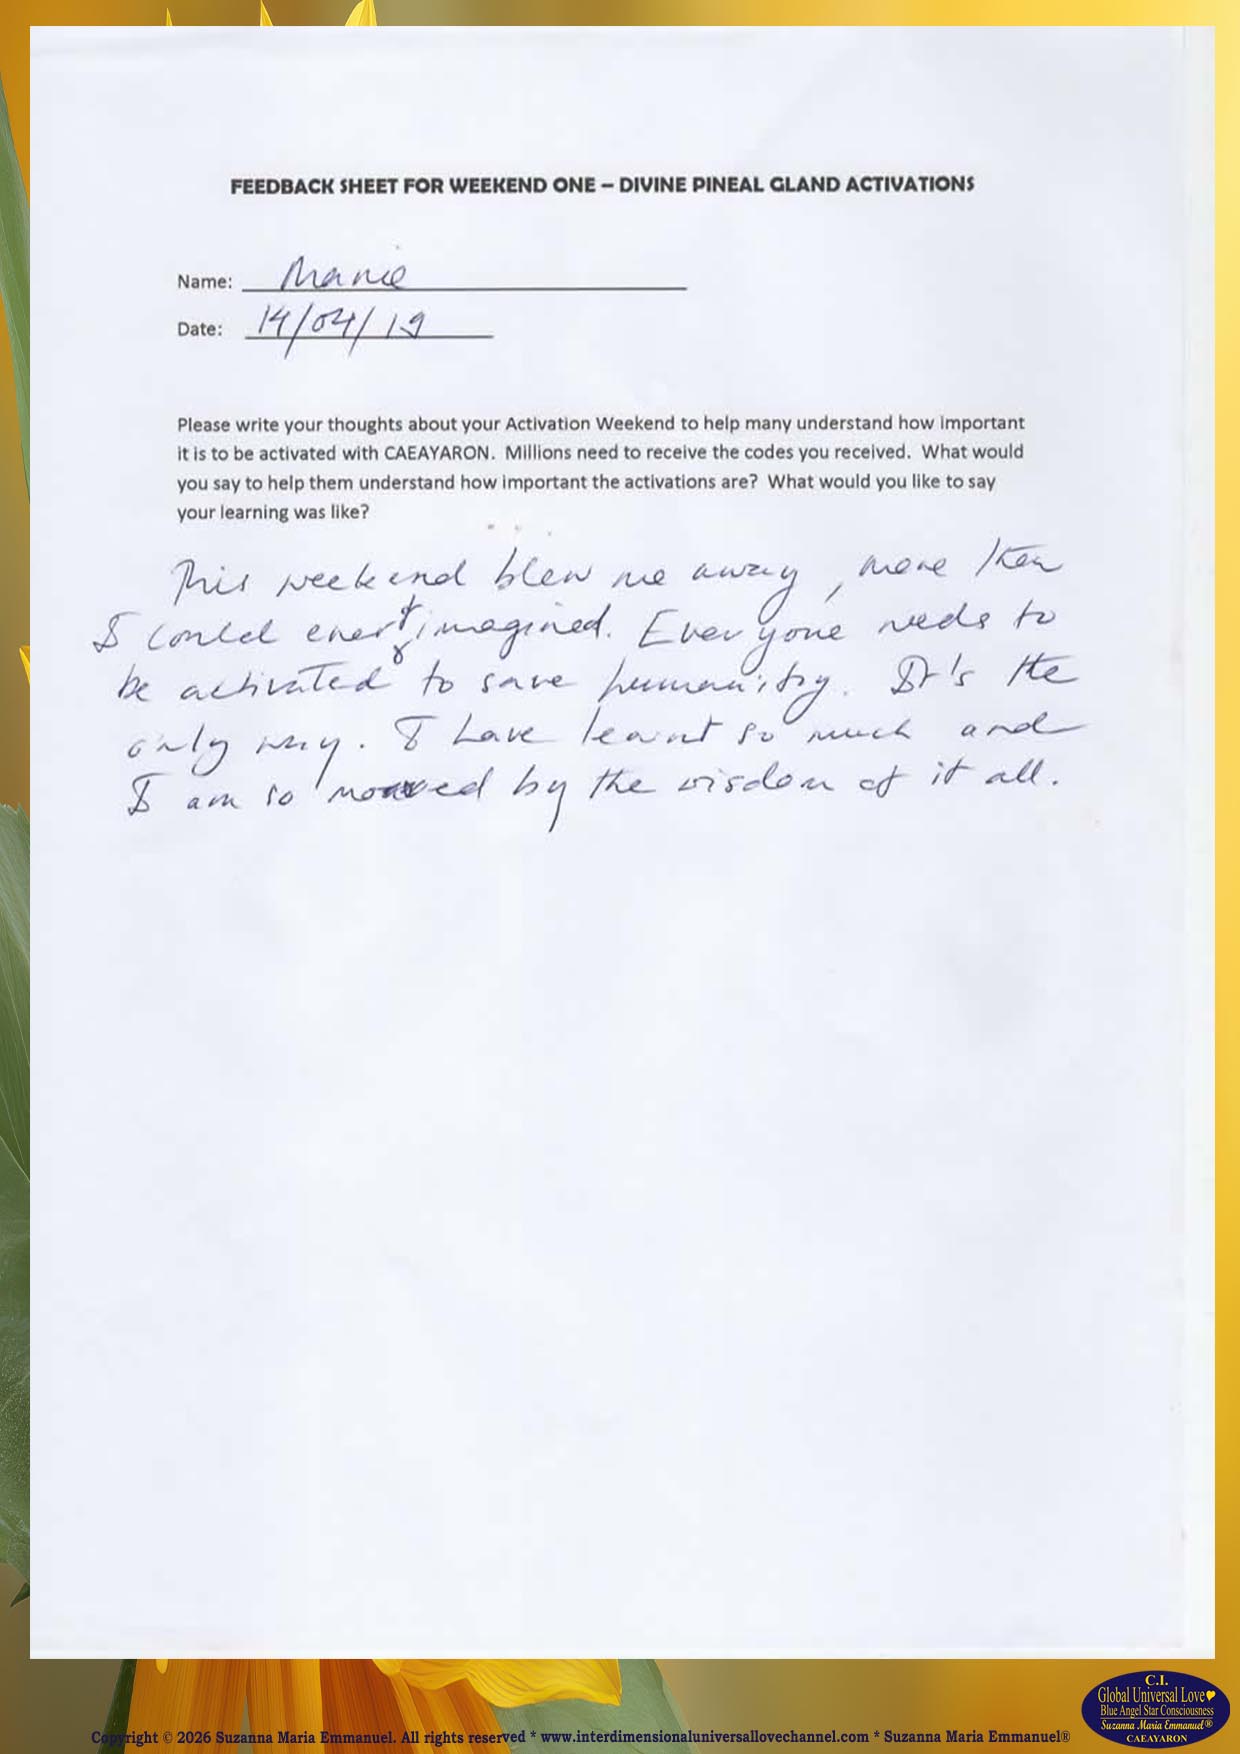 FEEDBACK SHEET FOR WEEKEND ONE – DIVINE PINEAL GLAND ACTIVATIONS
Name: Marie
Date: 14/04/19
Please write your thoughts about your Activation Weekend to help many understand how important
it is to be activated with CAEAYARON. Millions need to receive the codes you received. What would
you say to help them understand how important the activations are? What would you like to say
your learning was like?
This weekend blew me away, more than
I could ever imagined. Everyone needs to
be activated to save humanity. It's the
only way. I have learnt so much and
I am so moved by the wisdom of it all.
C.I.
Global Universal Love
Blue Angel Star Consciousness
Suzanna Maria Emmanuel®
CAEAYARON
Copyright © 2026 Suzanna Maria Emmanuel. All rights reserved * www.interdimensionaluniversallovechannel.com * Suzanna Maria Emmanuel®